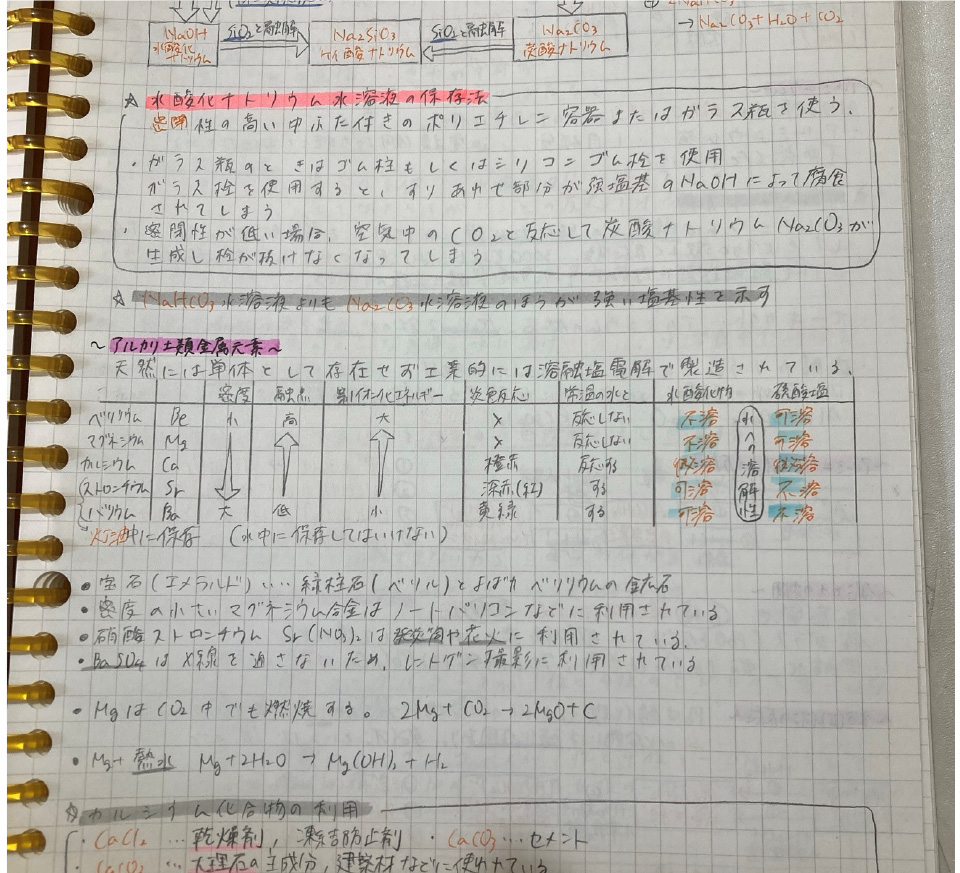 NaOH SiO₂と融解 Na₂SiO₃ SiO₂と融解 Na₂CO₃
水酸化ナトリウム ケイ酸ナトリウム 炭酸ナトリウム
→Na₂CO₃+H₂O+CO₂
☆ 水酸化ナトリウム水溶液の保存法
密閉性の高い中ぶた付きのポリエチレン容器またはガラス瓶を使う.
・ガラス瓶のときはゴム栓もしくはシリコンゴム栓を使用
ガラス栓を使用すると,すりあわせ部分が強塩基のNaOHによって腐食
されてしまう
・密閉性が低い場合, 空気中のCO₂と反応して炭酸ナトリウムNa₂CO₃が
生成し栓が抜けなくなってしまう
☆ NaHCO₃水溶液よりもNa₂CO₃水溶液のほうが強い塩基性を示す
~アルカリ土類金属元素~
天然には単体として存在せず工業的には溶融塩電解で製造されている.
密度 融点 第1イオン化エネルギー 炎色反応 常温の水と 水酸化物 硫酸塩
ベリリウム Be 小 高 大 × 反応しない 不溶 可溶
マグネシウム Mg × 反応しない 不溶 可溶
カルシウム Ca 橙赤 反応する 微溶 微溶
ストロンチウム Sr 深赤(紅) する 可溶 不溶
バリウム Ba 大 低 小 黄緑 する 可溶 不溶
水への溶解性
灯油中に保存 (水中に保存してはいけない)
• 宝石(エメラルド)‥‥ 緑柱石(ベリル)とよばれベリリウムの鉱石
• 密度の小さいマグネシウム合金はノートパソコンなどに利用されている
• 硝酸ストロンチウム Sr(NO₃)₂は発炎筒や花火に利用されている.
• BaSO₄はX線を通さないため,レントゲン撮影に利用されている
• MgはCO₂中でも燃焼する。 2Mg+CO₂→2MgO+C
• Mg+熱水 Mg+2H₂O→Mg(OH)₂+H₂
☆カルシウム化合物の利用
・CaCl₂ …乾燥剤, 凍結防止剤 ・CaCO₃…セメント
・CaCO₃ …大理石の主成分,建築材などに使われている